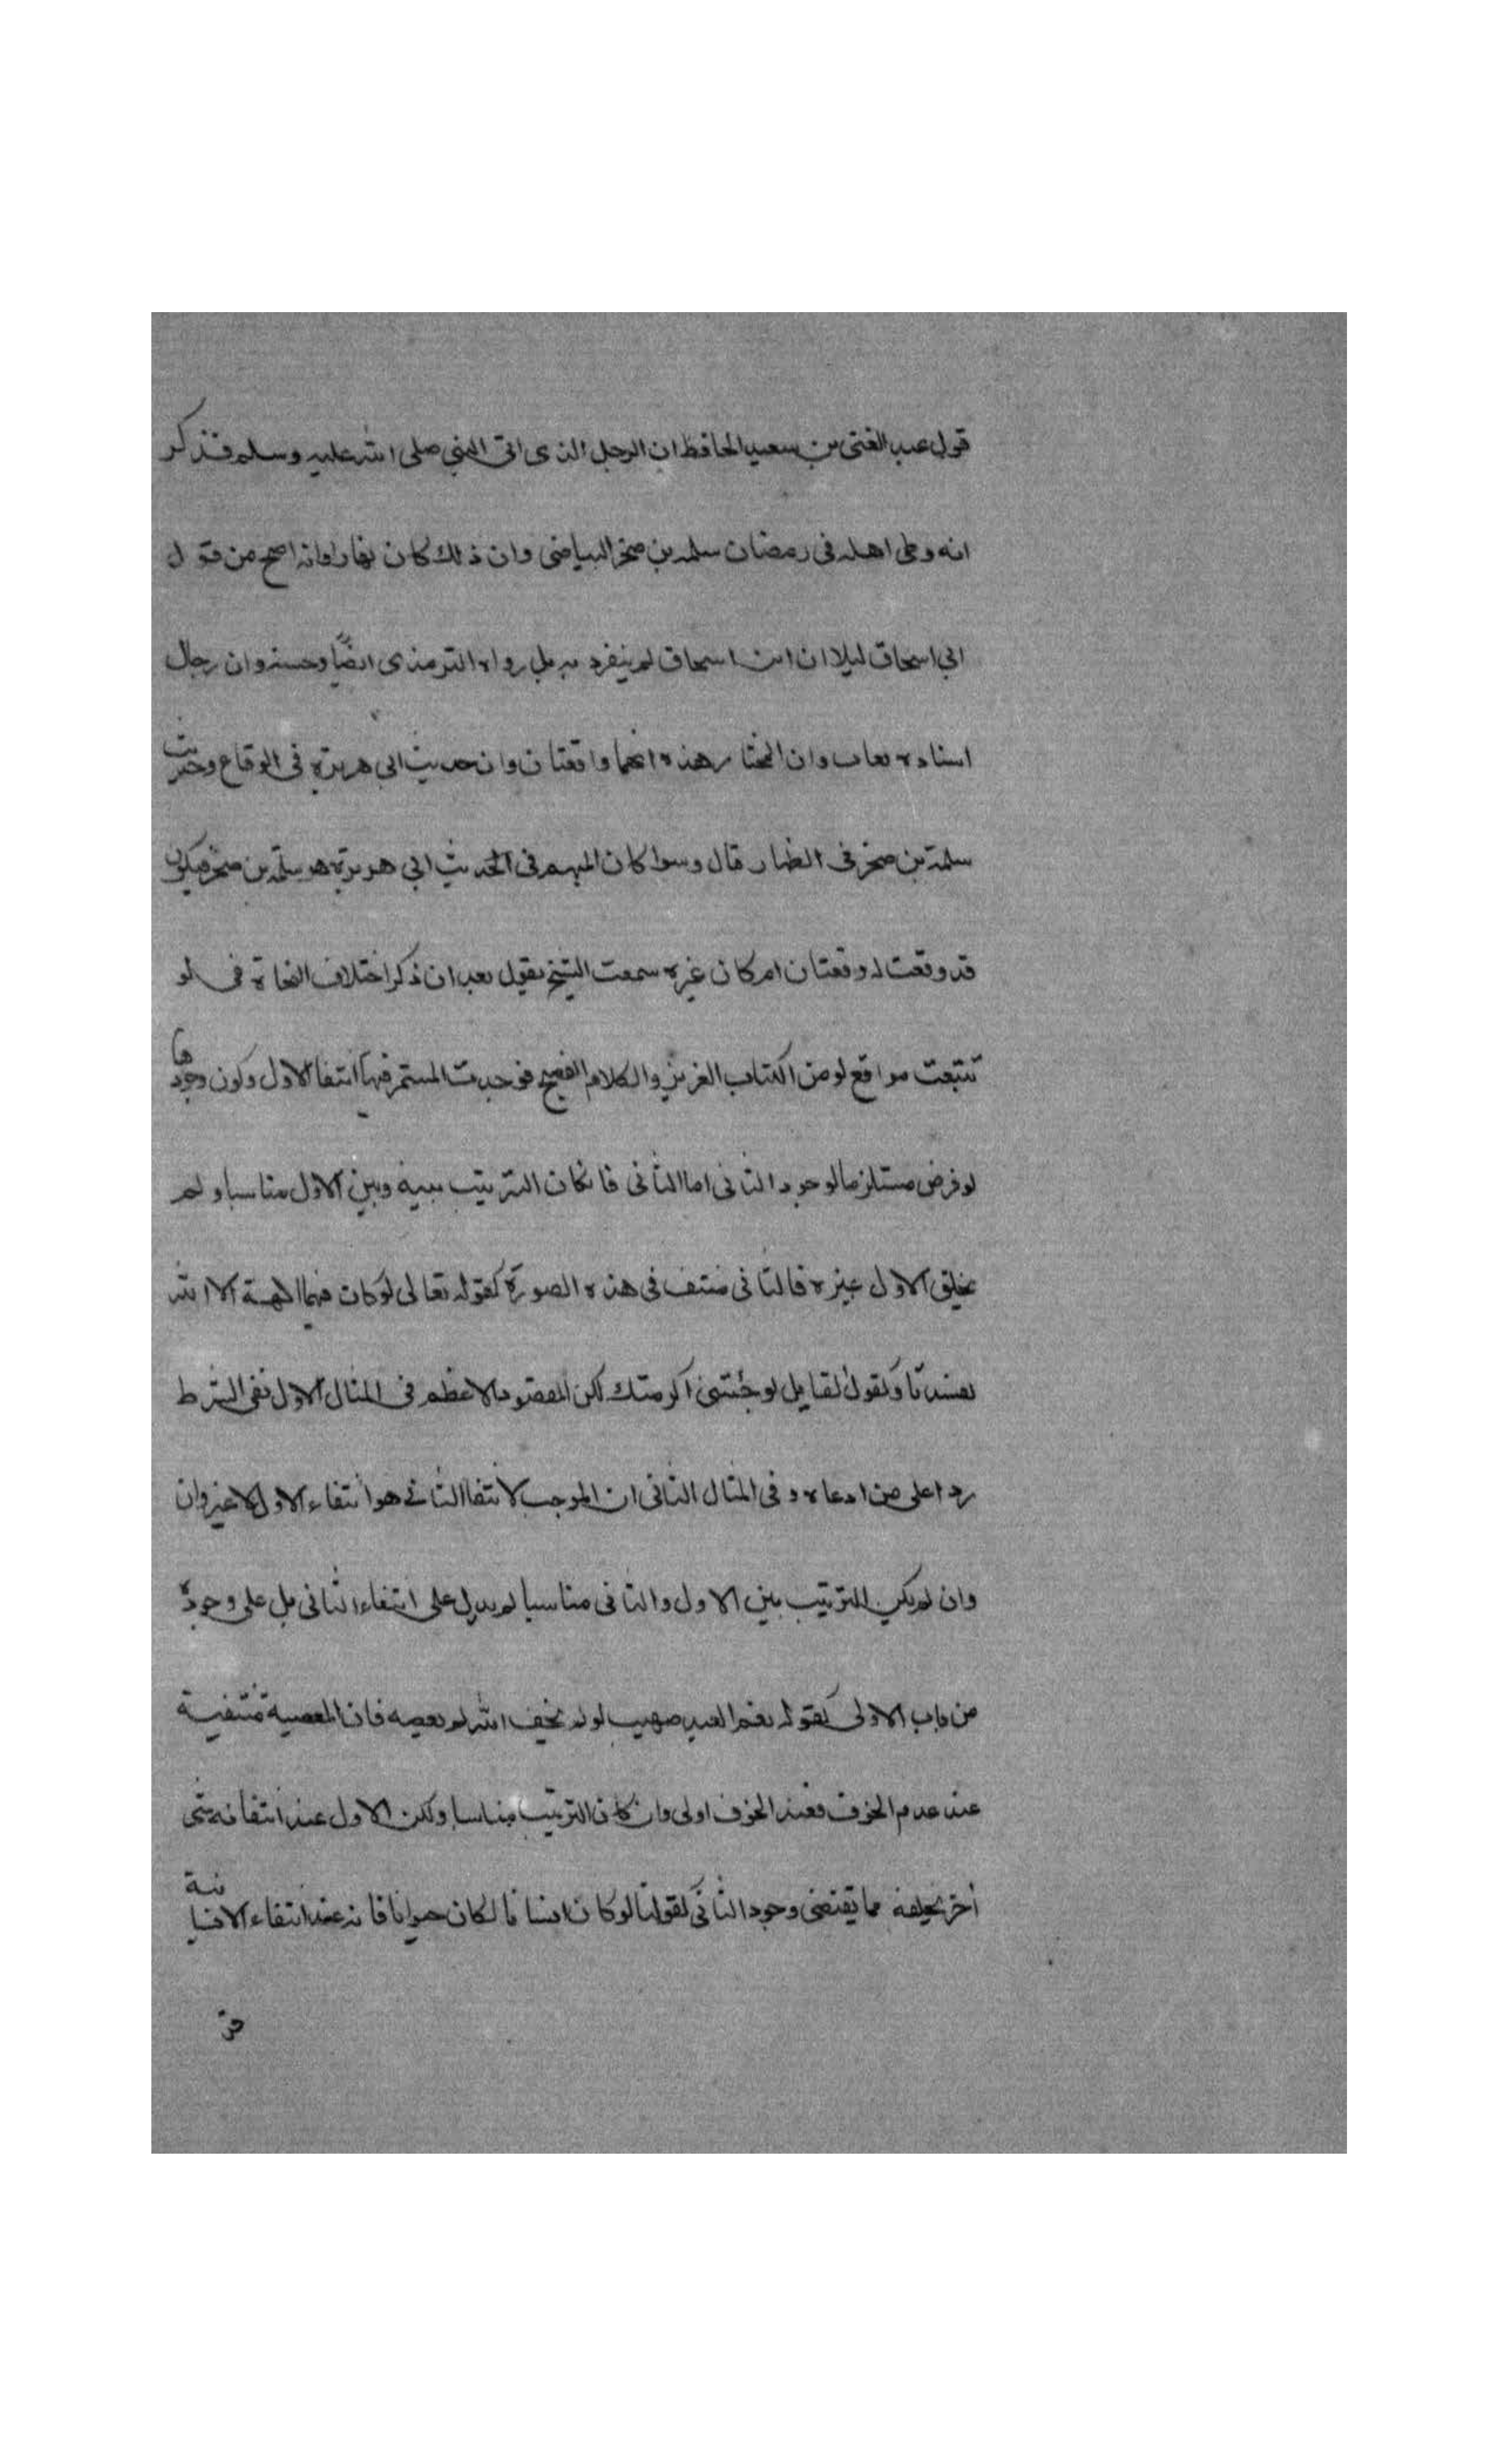 قول عبد الغنى بن سعيد الحافظ ان الرجل الذى اتى النبي صلى الله عليه وسلم فذكر
انه وطى اهله فى رمضان سلمه بن صخر البياضى وان ذلك كان نهارا وانه اصح من قول
ابي اسحاق ليلا ان ابن اسحاق لم ينفرد به بل رواه الترمذى ايضا وحسنه وان رجال
اسناده وان المختار هذه انهما واقعتان وان حديث ابي هريرة فى الوقاع وحديث
سلمة بن صخر فى الظهار قال وسوا كان المبهم فى الحديث ابي هريرة هو سلمة بن صخر فيكون
قد وقعت له وقعتان ام كان غيره سمعت الشيخ يقول بعد ان ذكر اختلاف النحاة فى لو
تتبعت مواقع لو من الكتاب العزيز والكلام الفصيح فوجدت المستمر فيها انتفا الاول وكون وجودها
لو فرض مستلزما لوجود الثانى اما الثانى فان كان الترتيب بينه وبين الاول مناسبا ولم
يخلق الاول غيره فالثانى منتف فى هذه الصورة كقوله تعالى لو كان فيهما الهة الا الله
لفسدتا وكقول لقايل لو جئتنى اكرمتك لكن المقصود الاعظم فى المثال الاول نفى الشرط
ردا على من ادعاه وفى المثال الثانى ان الموجب لانتفا الثانى هو انتفاء الاول لا غير وان
وان لم يكن الترتيب بين الاول والثانى مناسبا لم يدل على انتفاء الثانى بل على وجوده
من باب الاولى كقوله نعم العبد صهيب لو لم يخف الله لم يعصه فان المعصية منتفية
عند عدم الخوف فعند الخوف اولى وان كان الترتيب مناسبا ولكن الاول عند انتفائه شى
أخر يخلفه مما يقتضى وجود الثانى كقولنا لو كان انسانا لكان حيوانا فانه عند انتفاء الانسانية